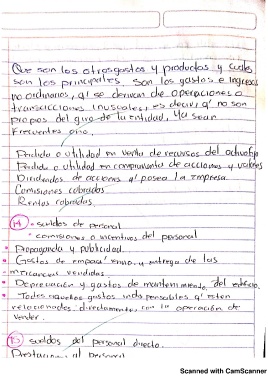 Que son los otros gastos y productos y cuales
son los principales. Son los gastos e ingresos
no ordinarios, q' se derivan de operaciones o
transacciones inusuales, es decir q' no son
propios del giro de la entidad, ya sean
frecuentes o no.
Perdida o utilidad en venta de recursos del activo fijo
Perdida o utilidad en compraventa de acciones y valores
Dividendos de acciones q' posea la empresa.
Comisiones cobradas.
Rentas cobradas.
sueldos de personal
comisiones o incentivos del personal
Propaganda y publicidad.
Gastos de empaque envio y entrega de las
mercancias vendidas.
Depreciación y gastos de mantenimiento del edificio.
Todos aquellos gastos indispensables q' esten
relacionados directamente con la operación de
vender.
sueldos del personal directo.
Prestacion al personal
Scanned with CamScanner